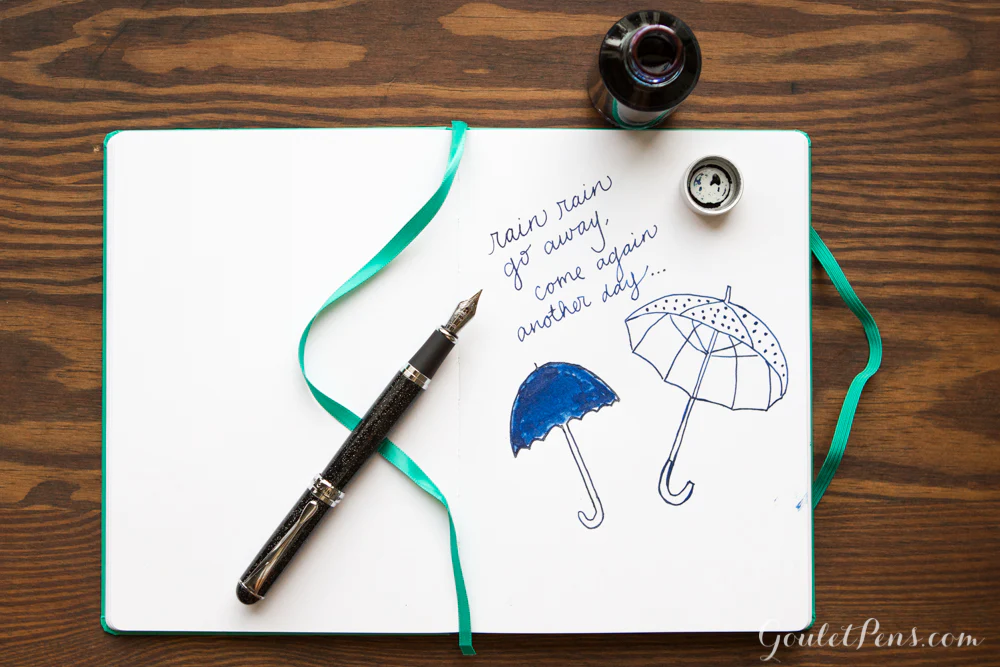 rain rain
go away,
come again
another day...
GouletPens.com